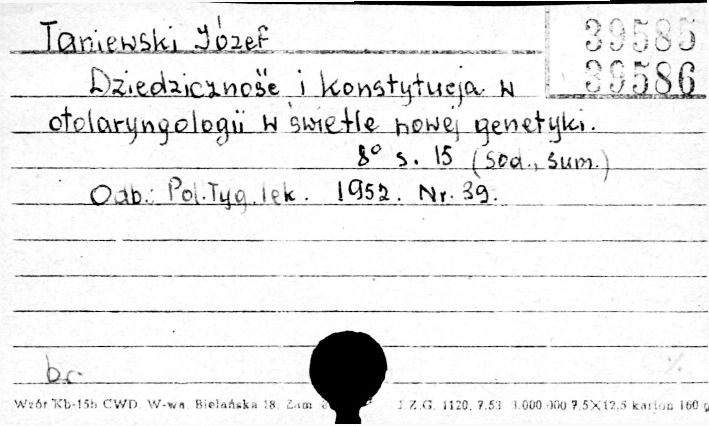 Taniewski Józef
39585
39586
Dziedziczność i konstytucja w
otolaryngologii w świetle nowej genetyki.
8° s. 15 (Sod., sum.)
Odb.: Pol. Tyg. lek. 1952. Nr. 39.
br.
Wzór Kb-15b CWD. W-wa, Bielańska 18. Zam J.Z.G. 1120. 7.53 3.000.000 7,5×12,5 karton 160 g